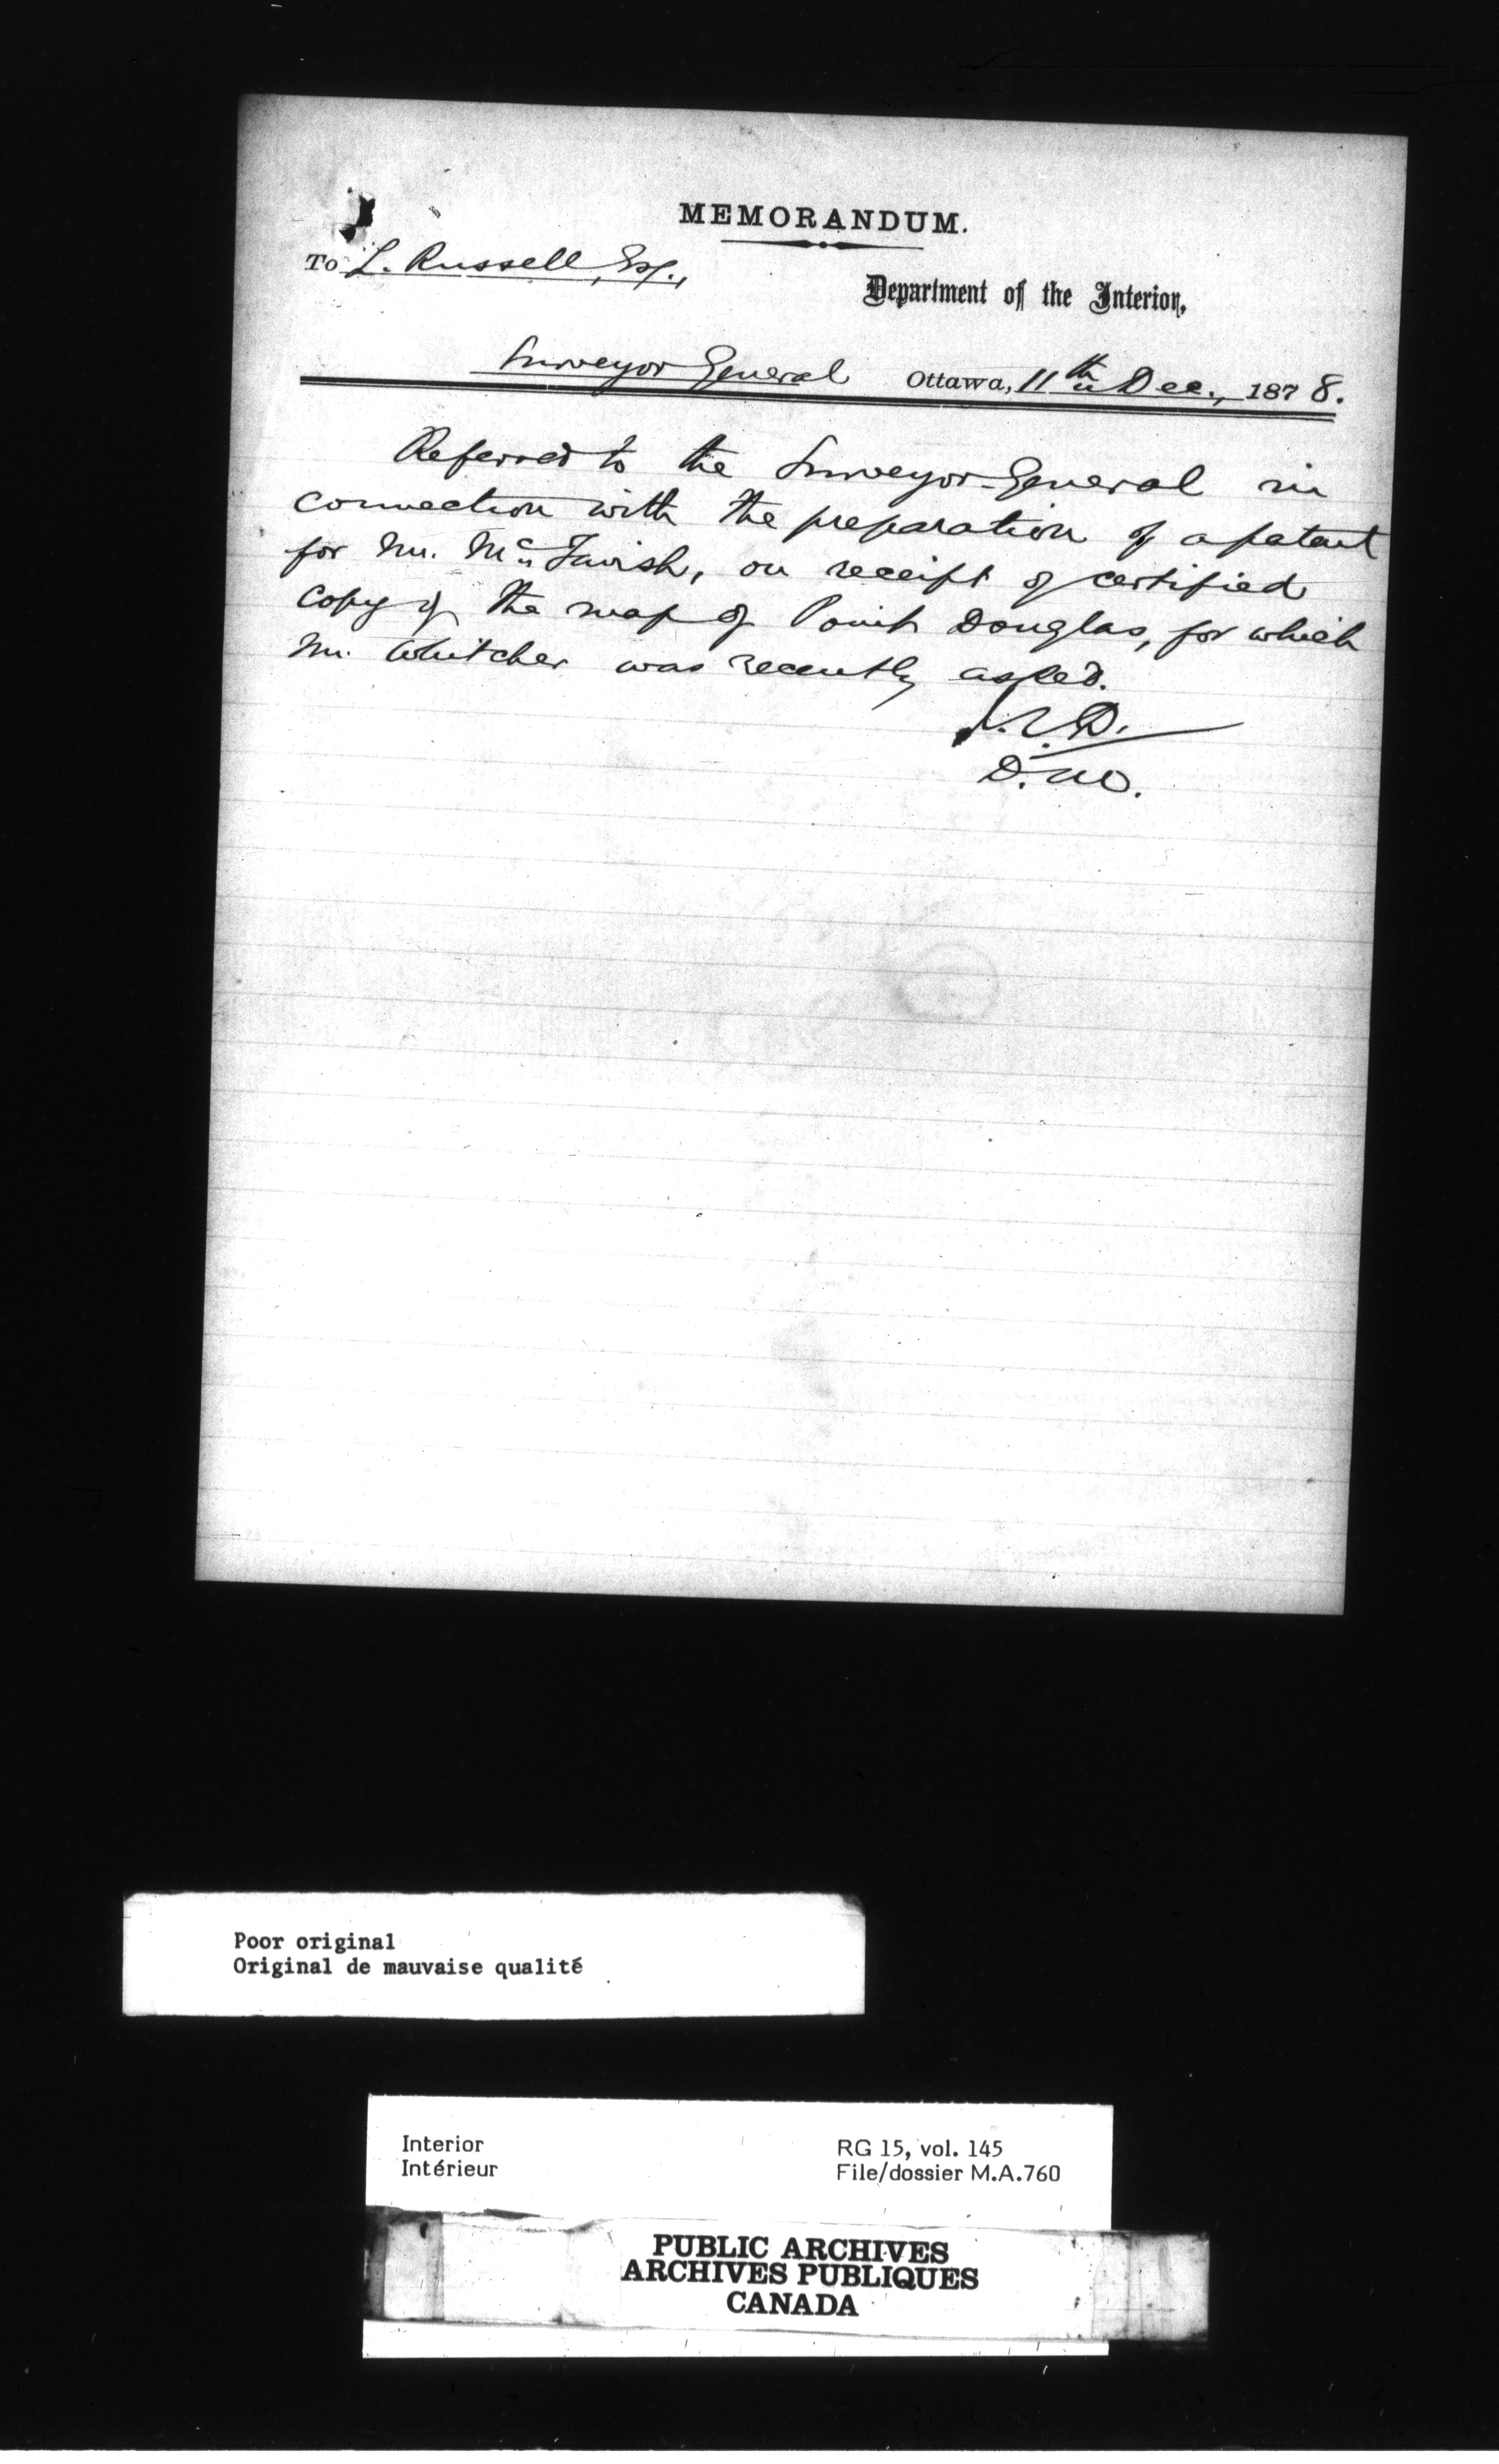 MEMORANDUM.
To L. Russell, Esq.,
Department of the Interior,
Surveyor General Ottawa, 11th Dec., 1878.
Referred to the Surveyor-General in
connection with the preparation of a patent
for Mr. McTavish, on receipt of certified
copy of the map of Point Douglas, for which
Mr. Whitcher was recently asked.
D.
Poor original
Original de mauvaise qualité
Interior
Intérieur
RG 15, vol. 145
File/dossier M.A.760
PUBLIC ARCHIVES
ARCHIVES PUBLIQUES
CANADA